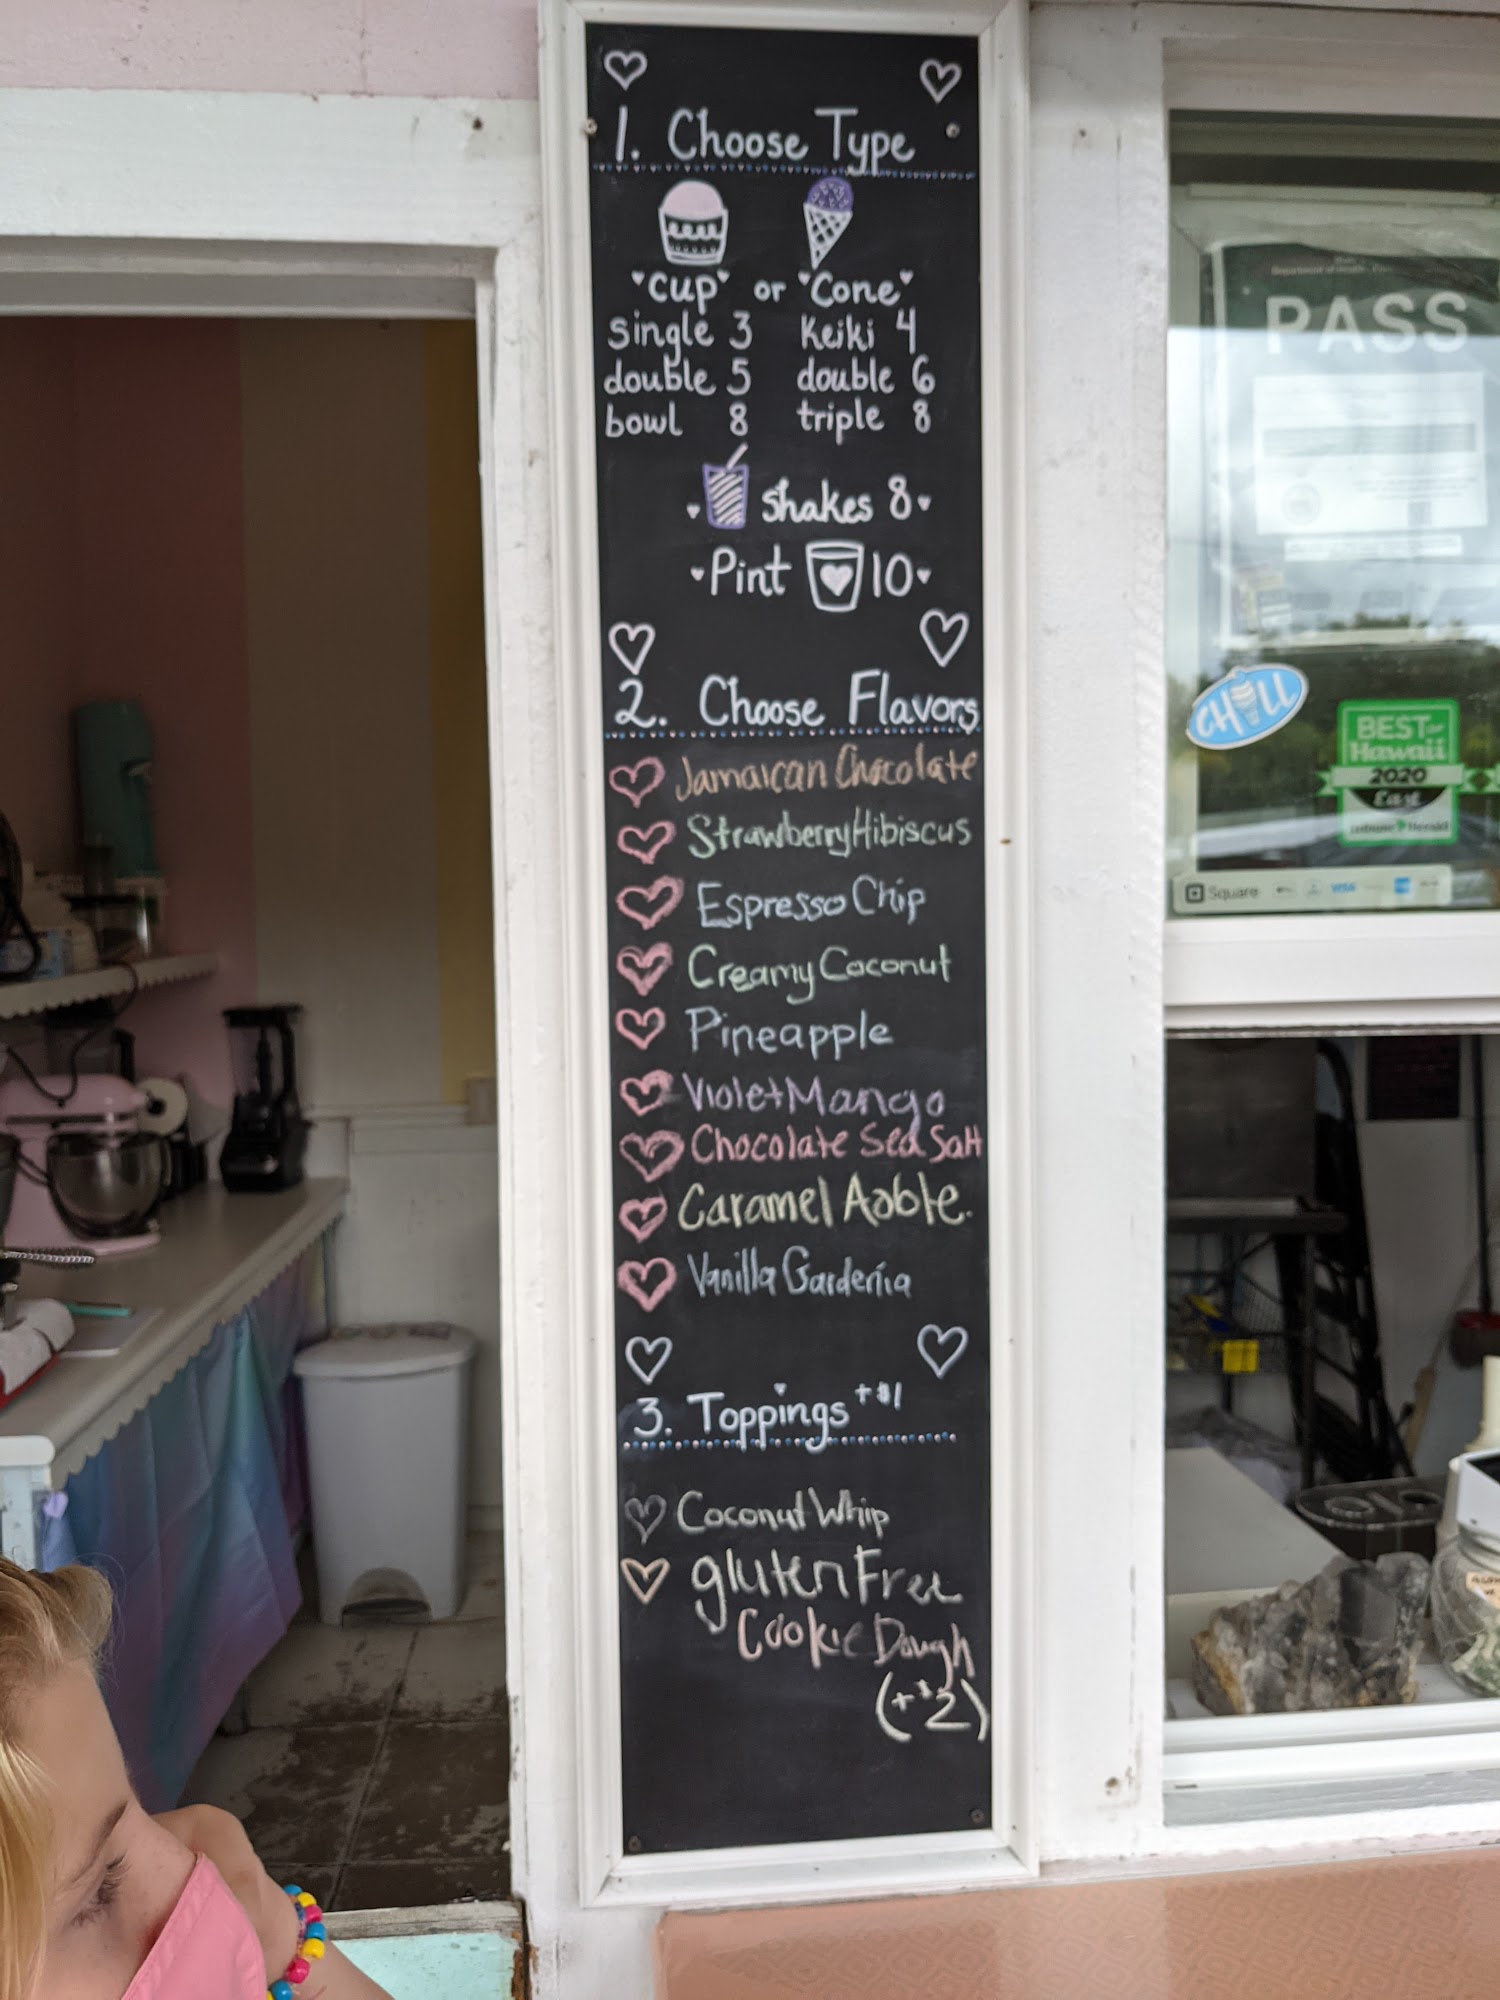 1. Choose Type
"Cup" or "Cone"
single 3 Keiki 4
double 5 double 6
bowl 8 triple 8
shakes 8
Pint 10
2. Choose Flavors
Jamaican Chocolate
Strawberry Hibiscus
Espresso Chip
Creamy Coconut
Pineapple
Violet Mango
Chocolate Sea Salt
Caramel Apple
Vanilla Gardenia
3. Toppings +$1
Coconut Whip
gluten Free
Cookie Dough
(+$2)
PASS
CHILL
BEST
Hawaii
2020
East
Tribune Herald
Square VISA